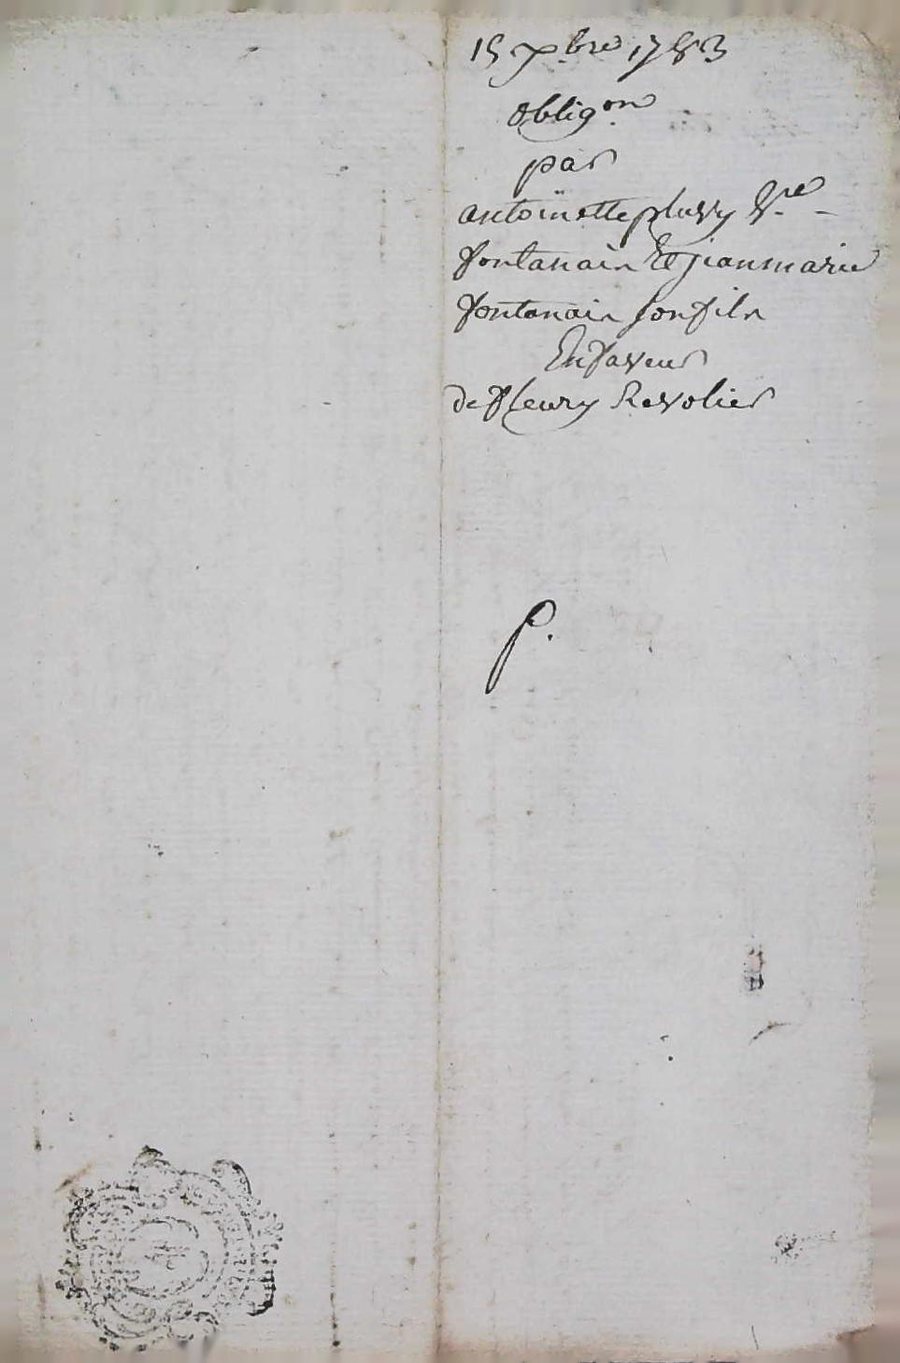 15 xbre 1783
obligon
par
antoinette pluvy Ve
fontanais Et jeanmarie
fontanais son fils
En faveur
de fleury Revolier
P.